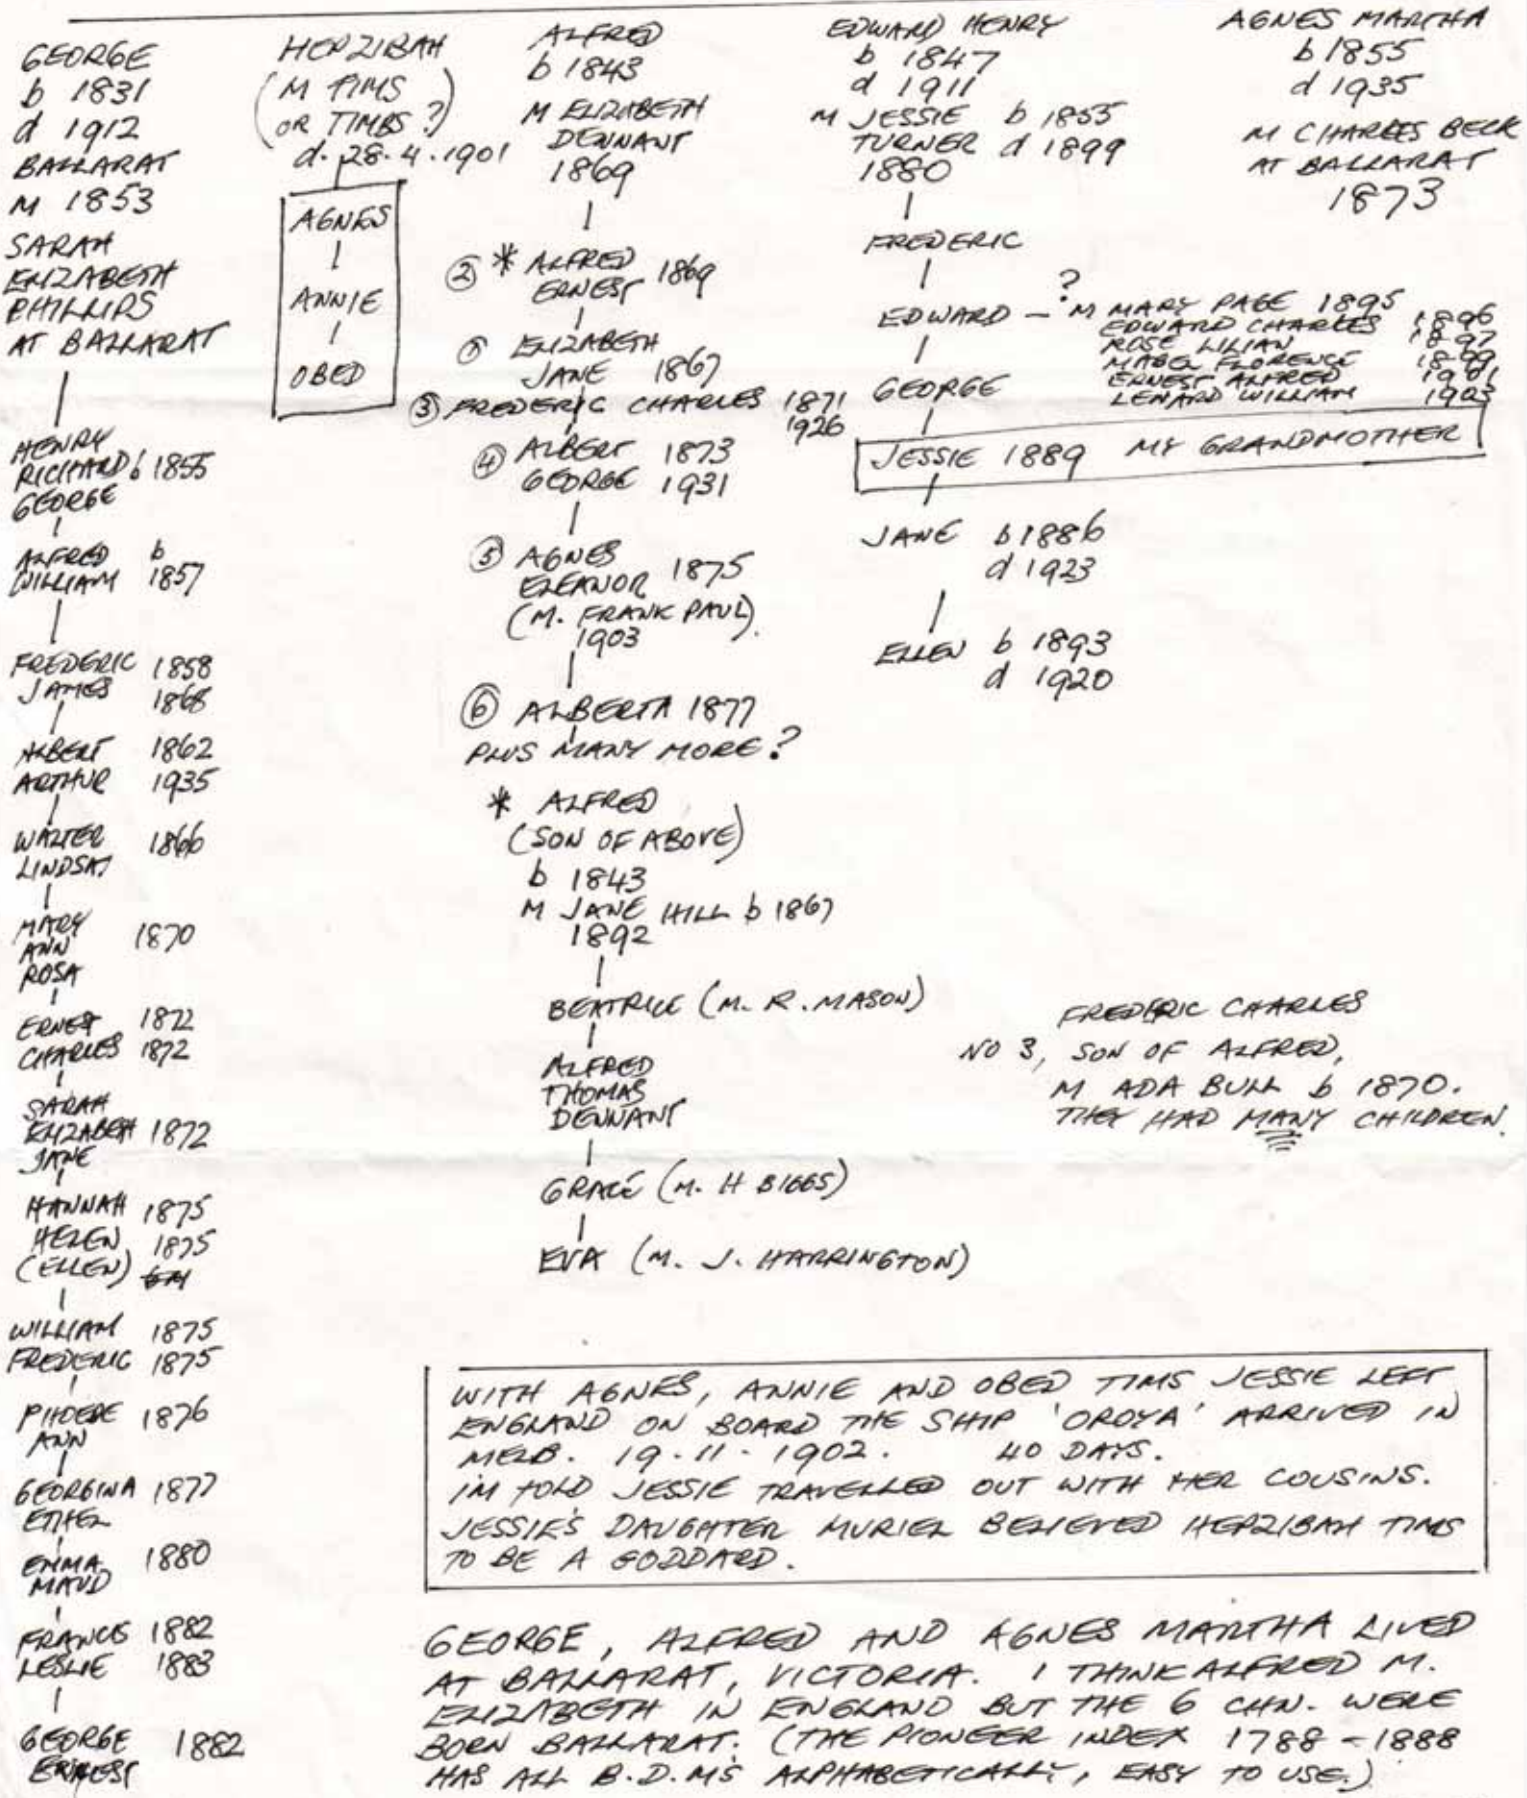 GEORGE
b 1831
d 1912
BALLARAT
M 1853
SARAH
ELIZABETH
PHILLIPS
AT BALLARAT
HENRY
RICHARD b 1855
GEORGE
ALFRED b
WILLIAM 1857
FREDERIC 1858
JAMES 1868
ALBERT 1862
ARTHUR 1935
WALTER 1866
LINDSAY
MARY
ANN 1870
ROSA
ERNEST 1872
CHARLES 1872
SARAH
ELIZABETH 1872
JANE
HANNAH 1875
HELEN 1875
(ELLEN)
WILLIAM 1875
FREDERIC 1875
PHOEBE 1876
ANN
GEORGINA 1877
ETHEL
EMMA 1880
MAUD
FRANCIS 1882
LESLIE 1883
GEORGE 1882
ERNEST
HEPZIBAH
(M TIMS
OR TIMBS?)
d. 28.4.1901
AGNES
ANNIE
OBED
ALFRED
b 1843
M ELIZABETH
DENNANT
1869
② * ALFRED 1869
ERNEST
① ELIZABETH
JANE 1867
③ FREDERIC CHARLES 1871
1926
④ ALBERT 1873
GEORGE 1931
⑤ AGNES
ELEANOR 1875
(M. FRANK PAUL)
1903
⑥ ALBERTA 1877
PLUS MANY MORE?
* ALFRED
(SON OF ABOVE)
b 1843
M JANE HILL b 1867
1892
BEATRICE (M. R. MASON)
ALFRED
THOMAS
DENNANT
GRACE (M. H BIGGS)
EVA (M. J. HARRINGTON)
EDWARD HENRY
b 1847
d 1911
M JESSIE b 1855
TURNER d 1899
1880
FREDERIC
?
EDWARD - M MARY PAGE 1895
EDWARD CHARLES 1896
ROSE LILIAN 1897
MABEL FLORENCE 1899
ERNEST ALFRED 1901
LENARD WILLIAM 1903
GEORGE
JESSIE 1889 MY GRANDMOTHER
JANE b 1886
d 1923
ELLEN b 1893
d 1920
AGNES MARTHA
b 1855
d 1935
M CHARLES BECK
AT BALLARAT
1873
FREDERIC CHARLES
NO 3, SON OF ALFRED,
M ADA BULL b 1870.
THEY HAD MANY CHILDREN.
WITH AGNES, ANNIE AND OBED TIMS JESSIE LEFT
ENGLAND ON BOARD THE SHIP 'OROYA' ARRIVED IN
MELB. 19.11.1902. 40 DAYS.
IM TOLD JESSIE TRAVELLED OUT WITH HER COUSINS.
JESSIE'S DAUGHTER MURIEL BELIEVED HEPZIBAH TIMS
TO BE A GODDARD.
GEORGE, ALFRED AND AGNES MARTHA LIVED
AT BALLARAT, VICTORIA. I THINK ALFRED M.
ELIZABETH IN ENGLAND BUT THE 6 CHN. WERE
BORN BALLARAT. (THE PIONEER INDEX 1788 - 1888
HAS ALL B.D.MS ALPHABETICALLY, EASY TO USE.)